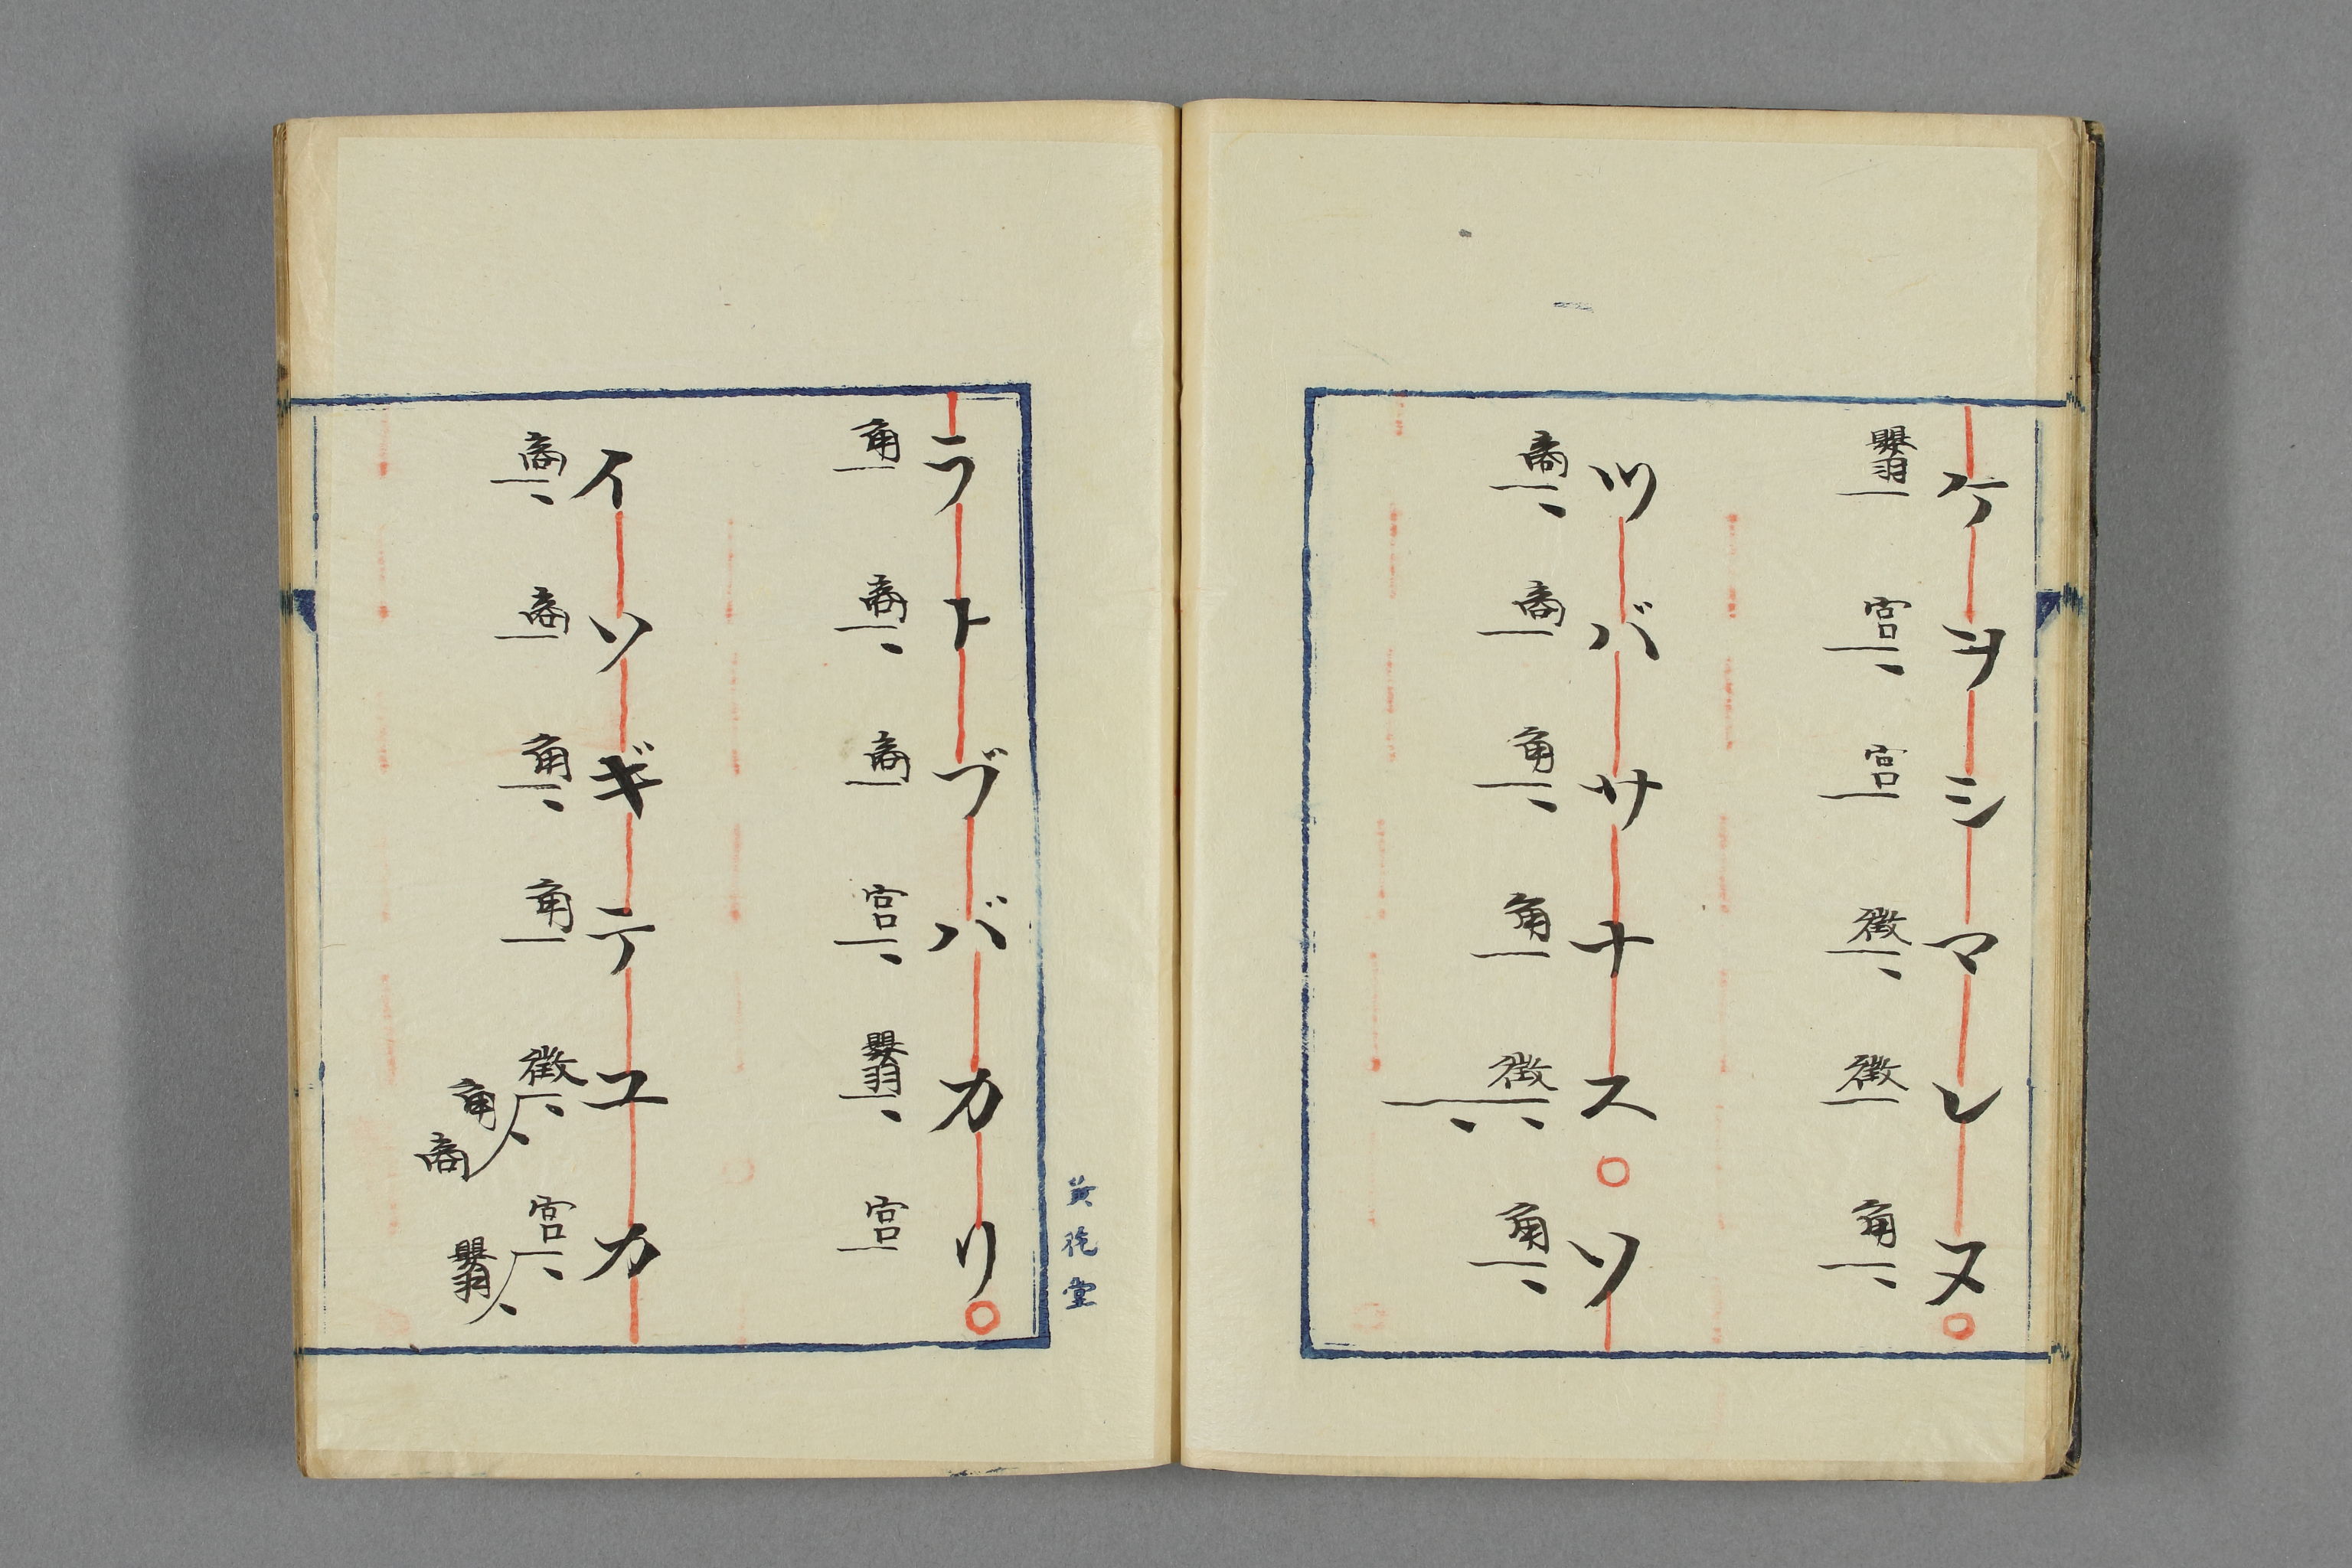 ケヲシマシヌ
嬰羽 宮 宮 徴 徴 角
ツバサナス○ソ
商 商 角 角 徴 角
ラトブバカリ○
角 商 商 宮 嬰羽 宮
イソギテユカ
商 商 角 角 徴 角 商 宮 嬰羽